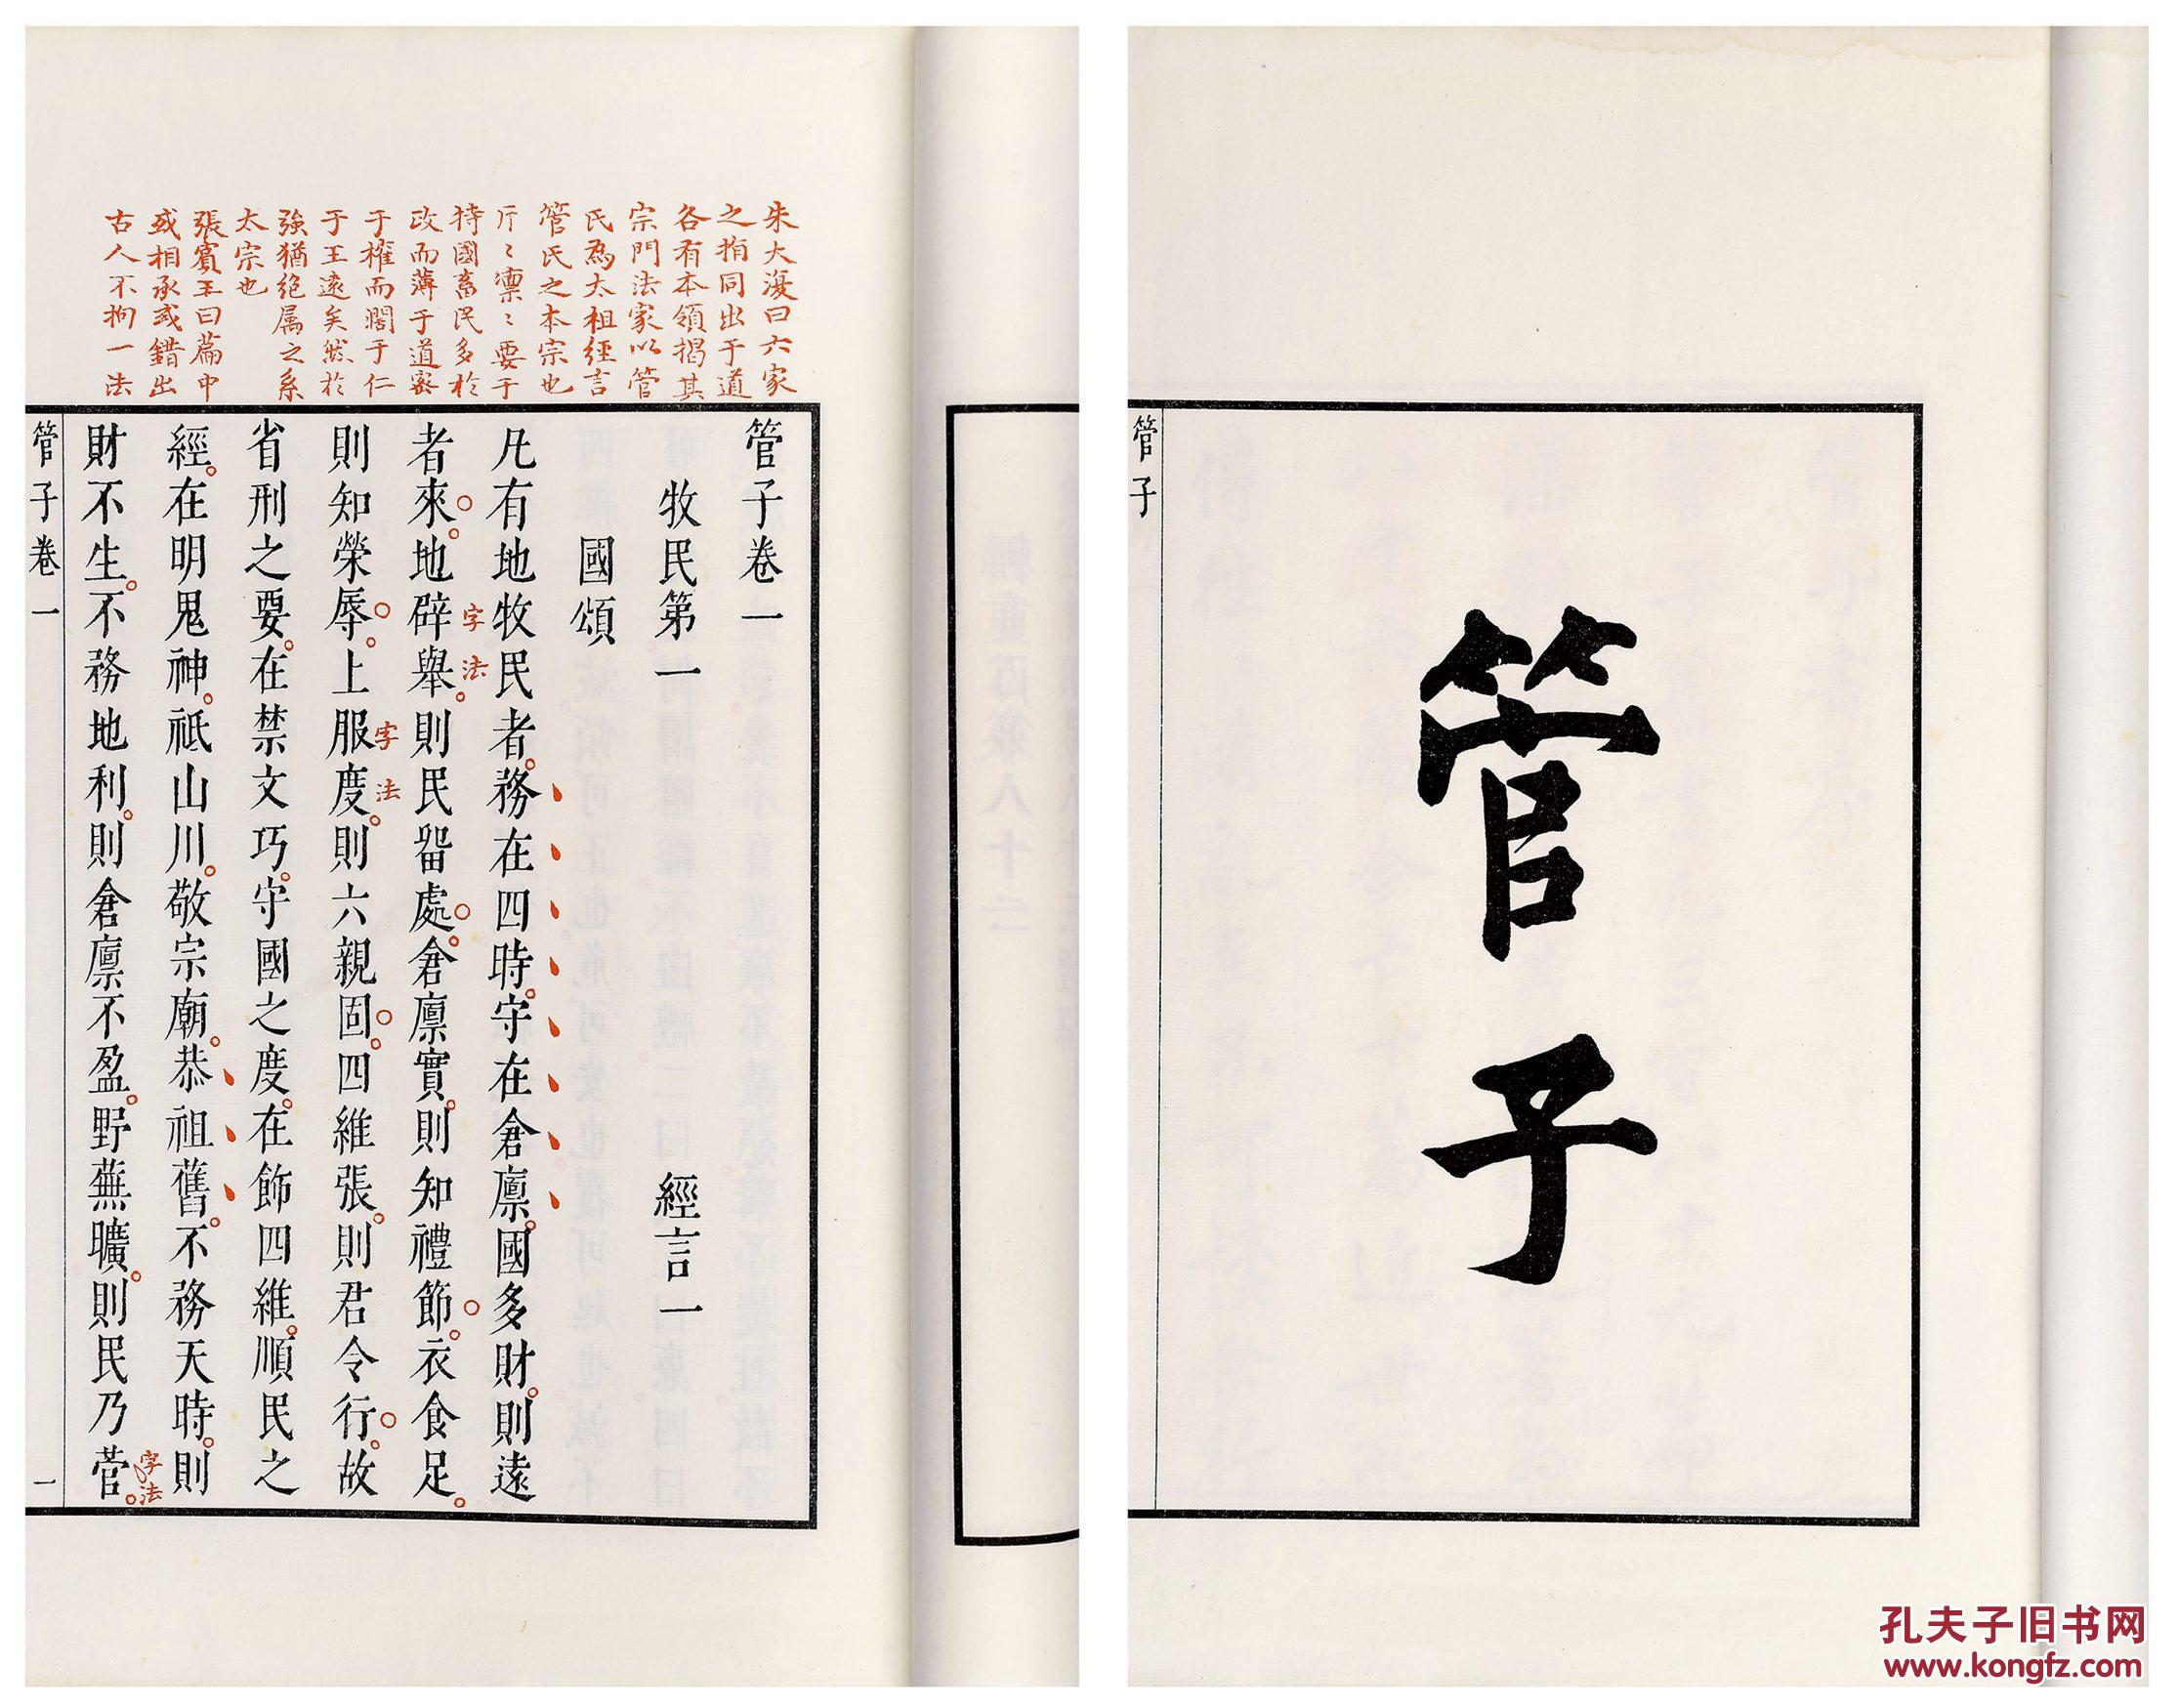 管子
管子
朱大復曰六家
之指同出于道
各有本領揭其
宗門法家以管
氏為太祖經言
管氏之本宗也
斤〻凛〻要于
持國畜民多於
政而薄于道密
于權而濶于仁
于王遠矣然於
強猶絶属之系
太宗也
張賓王曰篇中
或相承或錯出
古人不拘一法
管子卷一
牧民第一 經言一
國頌
凡有地牧民者。務在四時。守在倉廩。國多財。則遠
者來。地辟舉。則民畱處。倉廩實。則知禮節。衣食足。
字法
則知榮辱。上服度。則六親固。四維張。則君令行。故
字法
省刑之要。在禁文巧。守國之度。在飾四維。順民之
經。在明鬼神。祗山川。敬宗廟。恭祖舊。不務天時。則
財不生。不務地利。則倉廩不盈。野蕪曠。則民乃菅。
字法
管子卷一
一
孔夫子旧书网
www.kongfz.com